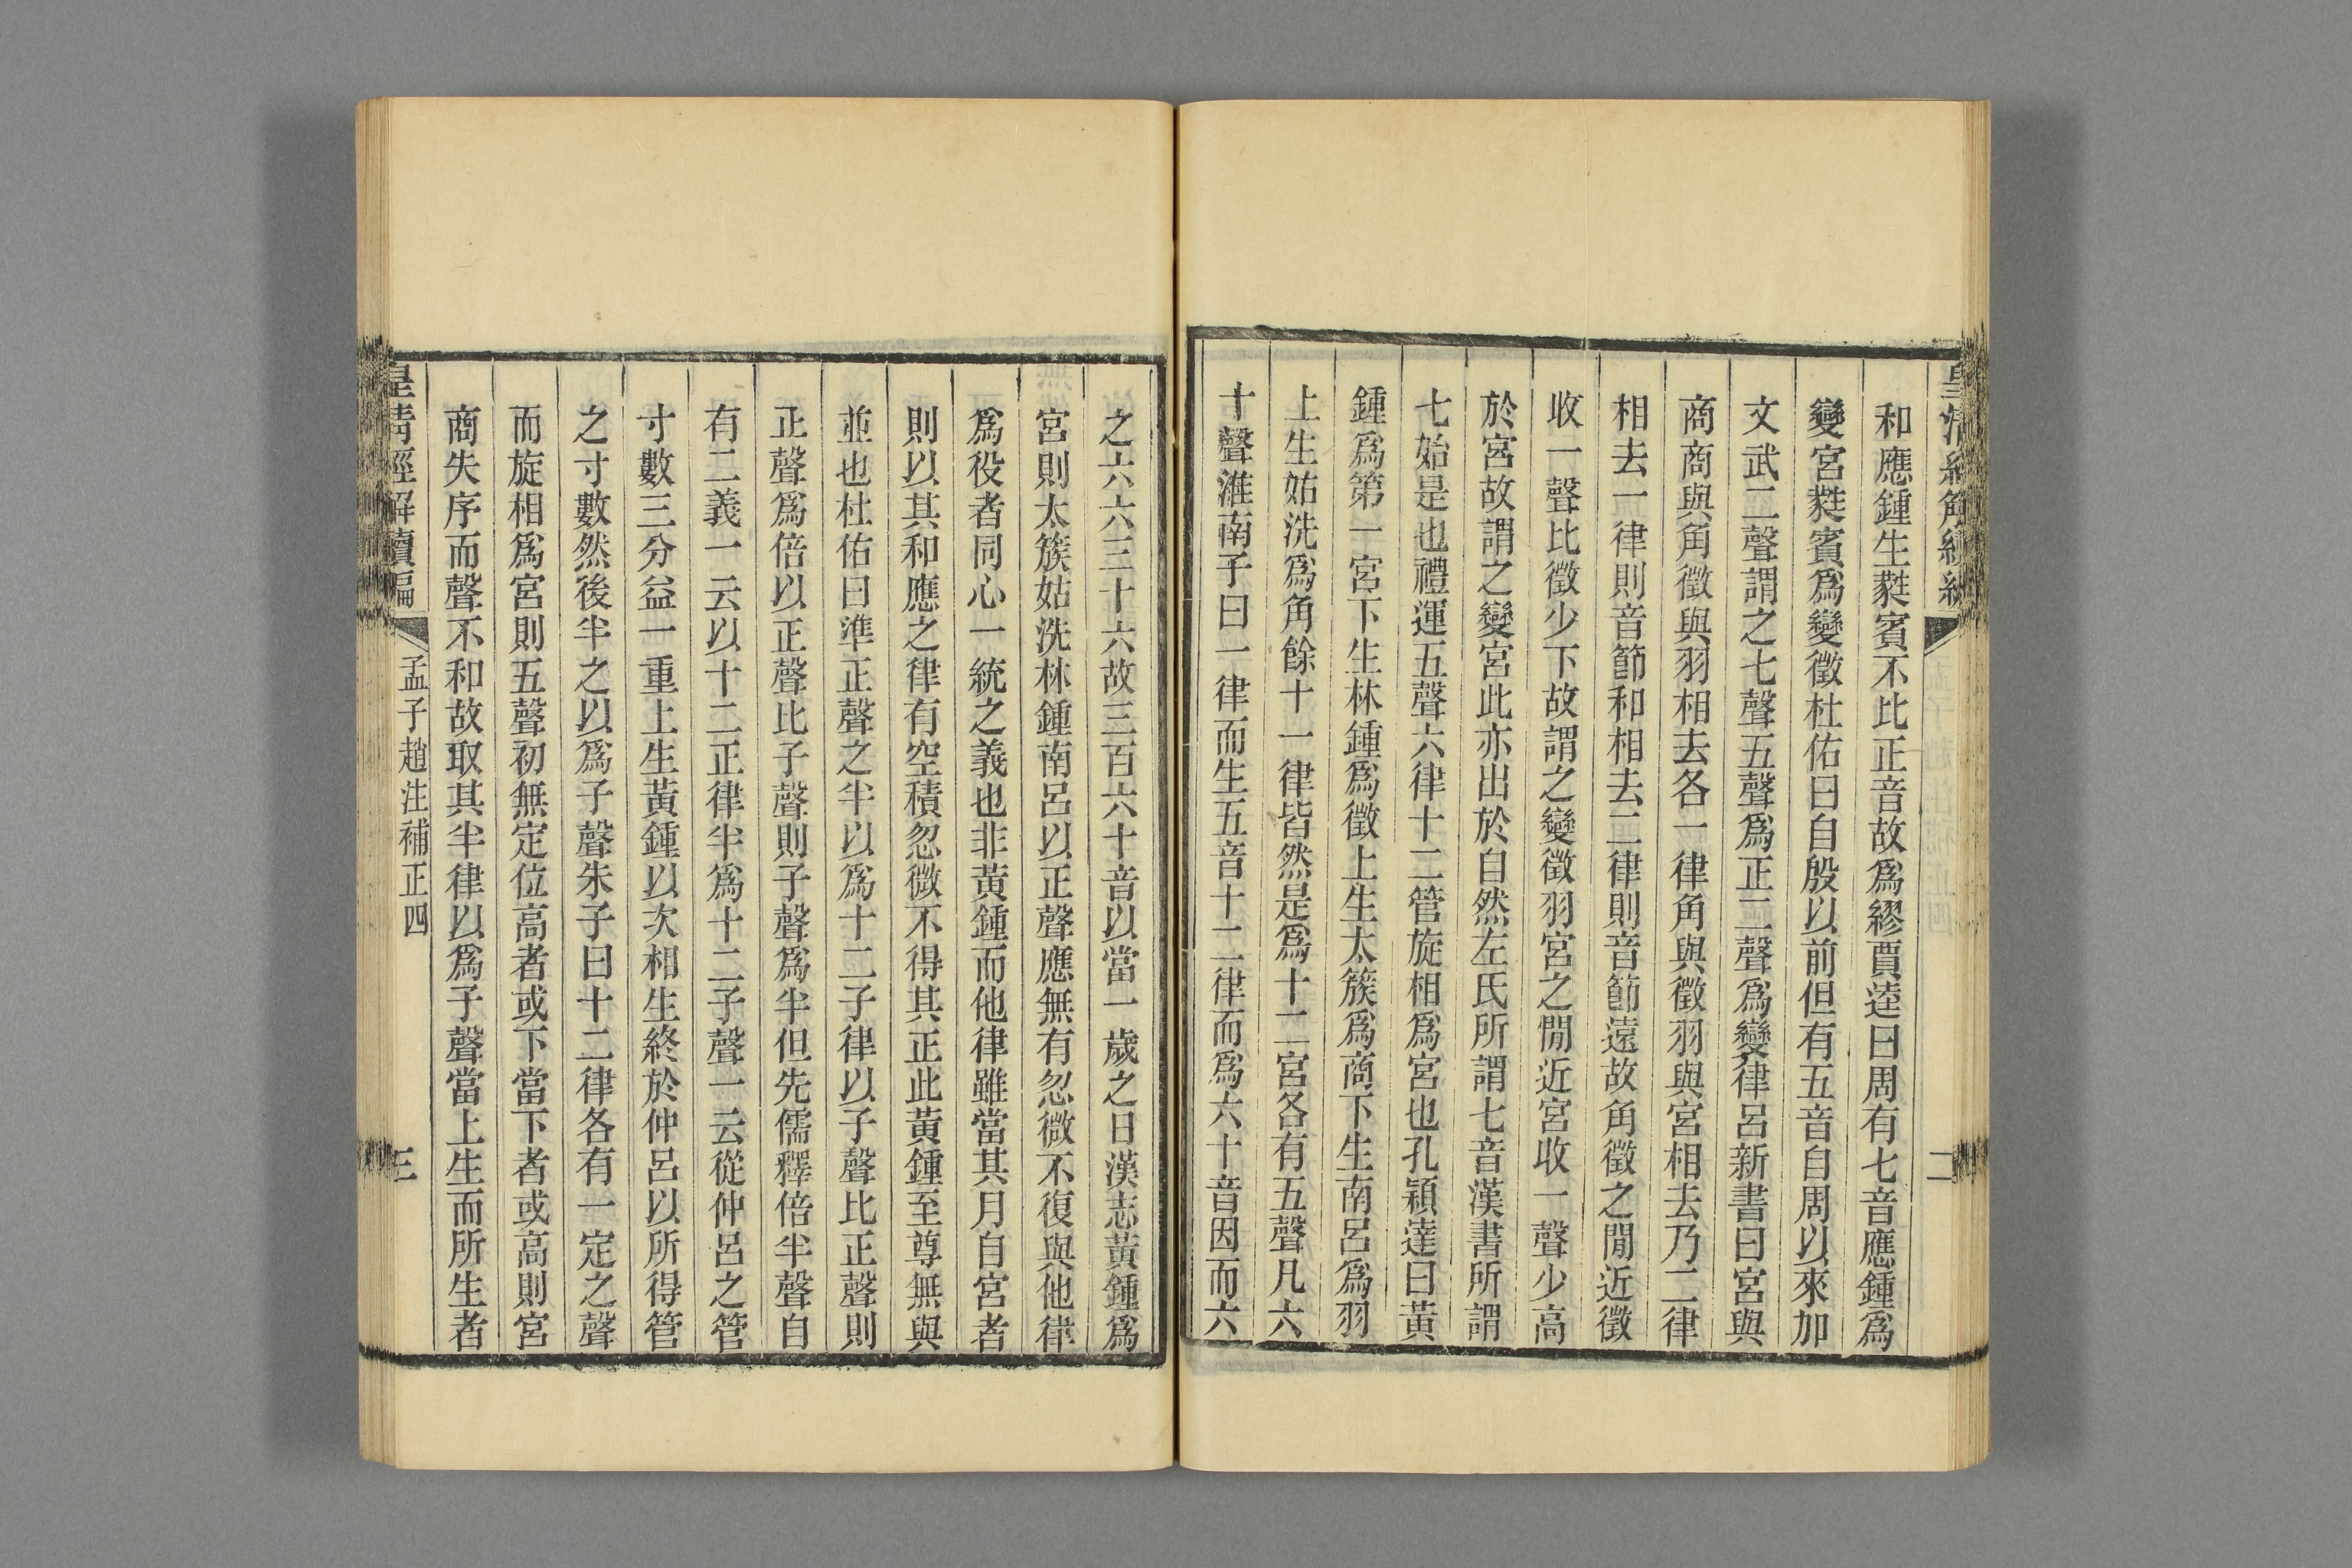 和應鍾生蕤賓不比正音故爲繆賈逵曰周有七音應鍾爲
變宮蕤賓爲變徵杜佑曰自殷以前但有五音自周以來加
文武二聲謂之七聲五聲爲正二聲爲變律呂新書曰宮與
商商與角徵與羽相去各一律角與徵羽與宮相去乃二律
相去一律則音節和相去二律則音節遠故角徵之閒近徵
收一聲比徵少下故謂之變徵羽宮之閒近宮收一聲少高
於宮故謂之變宮此亦出於自然左氏所謂七音漢書所謂
七始是也禮運五聲六律十二管旋相爲宮也孔穎達曰黃
鍾爲第一宮下生林鍾爲徵上生太簇爲商下生南呂爲羽
上生姑洗爲角餘十一律皆然是爲十二宮各有五聲凡六
十聲淮南子曰一律而生五音十二律而爲六十音因而六
二
之六六三十六故三百六十音以當一歲之日漢志黃鍾爲
宮則太簇姑洗林鍾南呂以正聲應無有忽微不復與他律
爲役者同心一統之義也非黃鍾而他律雖當其月自宮者
則以其和應之律有空積忽微不得其正此黃鍾至尊無與
並也杜佑曰準正聲之半以爲十二子律以子聲比正聲則
正聲爲倍以正聲比子聲則子聲爲半但先儒釋倍半聲自
有二義一云以十二正律半爲十二子聲一云從仲呂之管
寸數三分益一重上生黃鍾以次相生終於仲呂以所得管
之寸數然後半之以爲子聲朱子曰十二律各有一定之聲
而旋相爲宮則五聲初無定位高者或下當下者或高則宮
商失序而聲不和故取其半律以爲子聲當上生而所生者
皇清經解續編
孟子趙注補正四
三